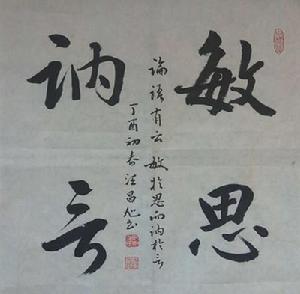 敏思
讷言
論語有云敏於思而讷於言
丁酉初春汪昌旭书